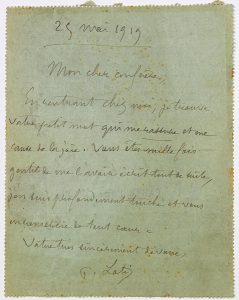 25 mai 1919
Mon cher confrère,
En rentrant chez moi, je trouve
votre petit mot qui me rassure et me
cause de la joie. Vous êtes mille fois
gentil de me l'avoir écrit tout de suite,
j'en suis profondément touché et vous
en remercie de tout cœur.
Votre très sincèrement dévoué,
P. Loti